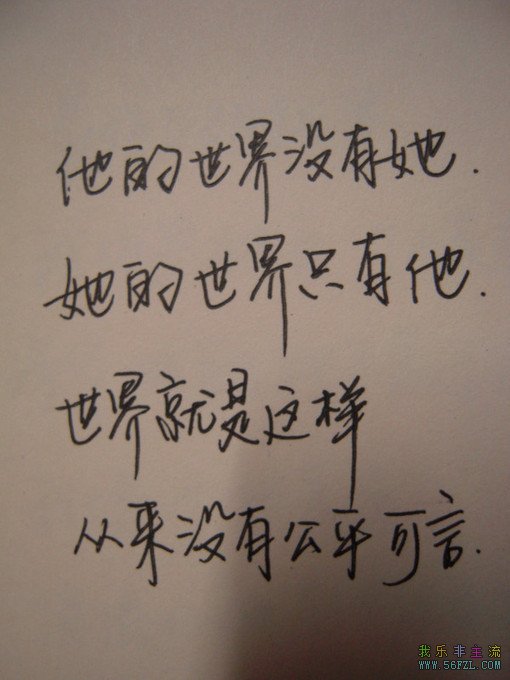 他的世界没有她.
她的世界只有他.
世界就是这样
从来没有公平可言.
我乐非主流
www.56FZL.com